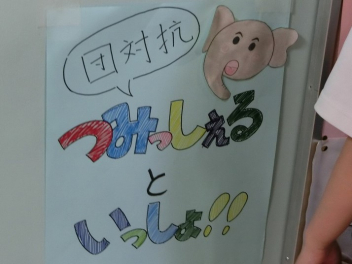 団対抗
つみっしぇる
と
いっしょ!!